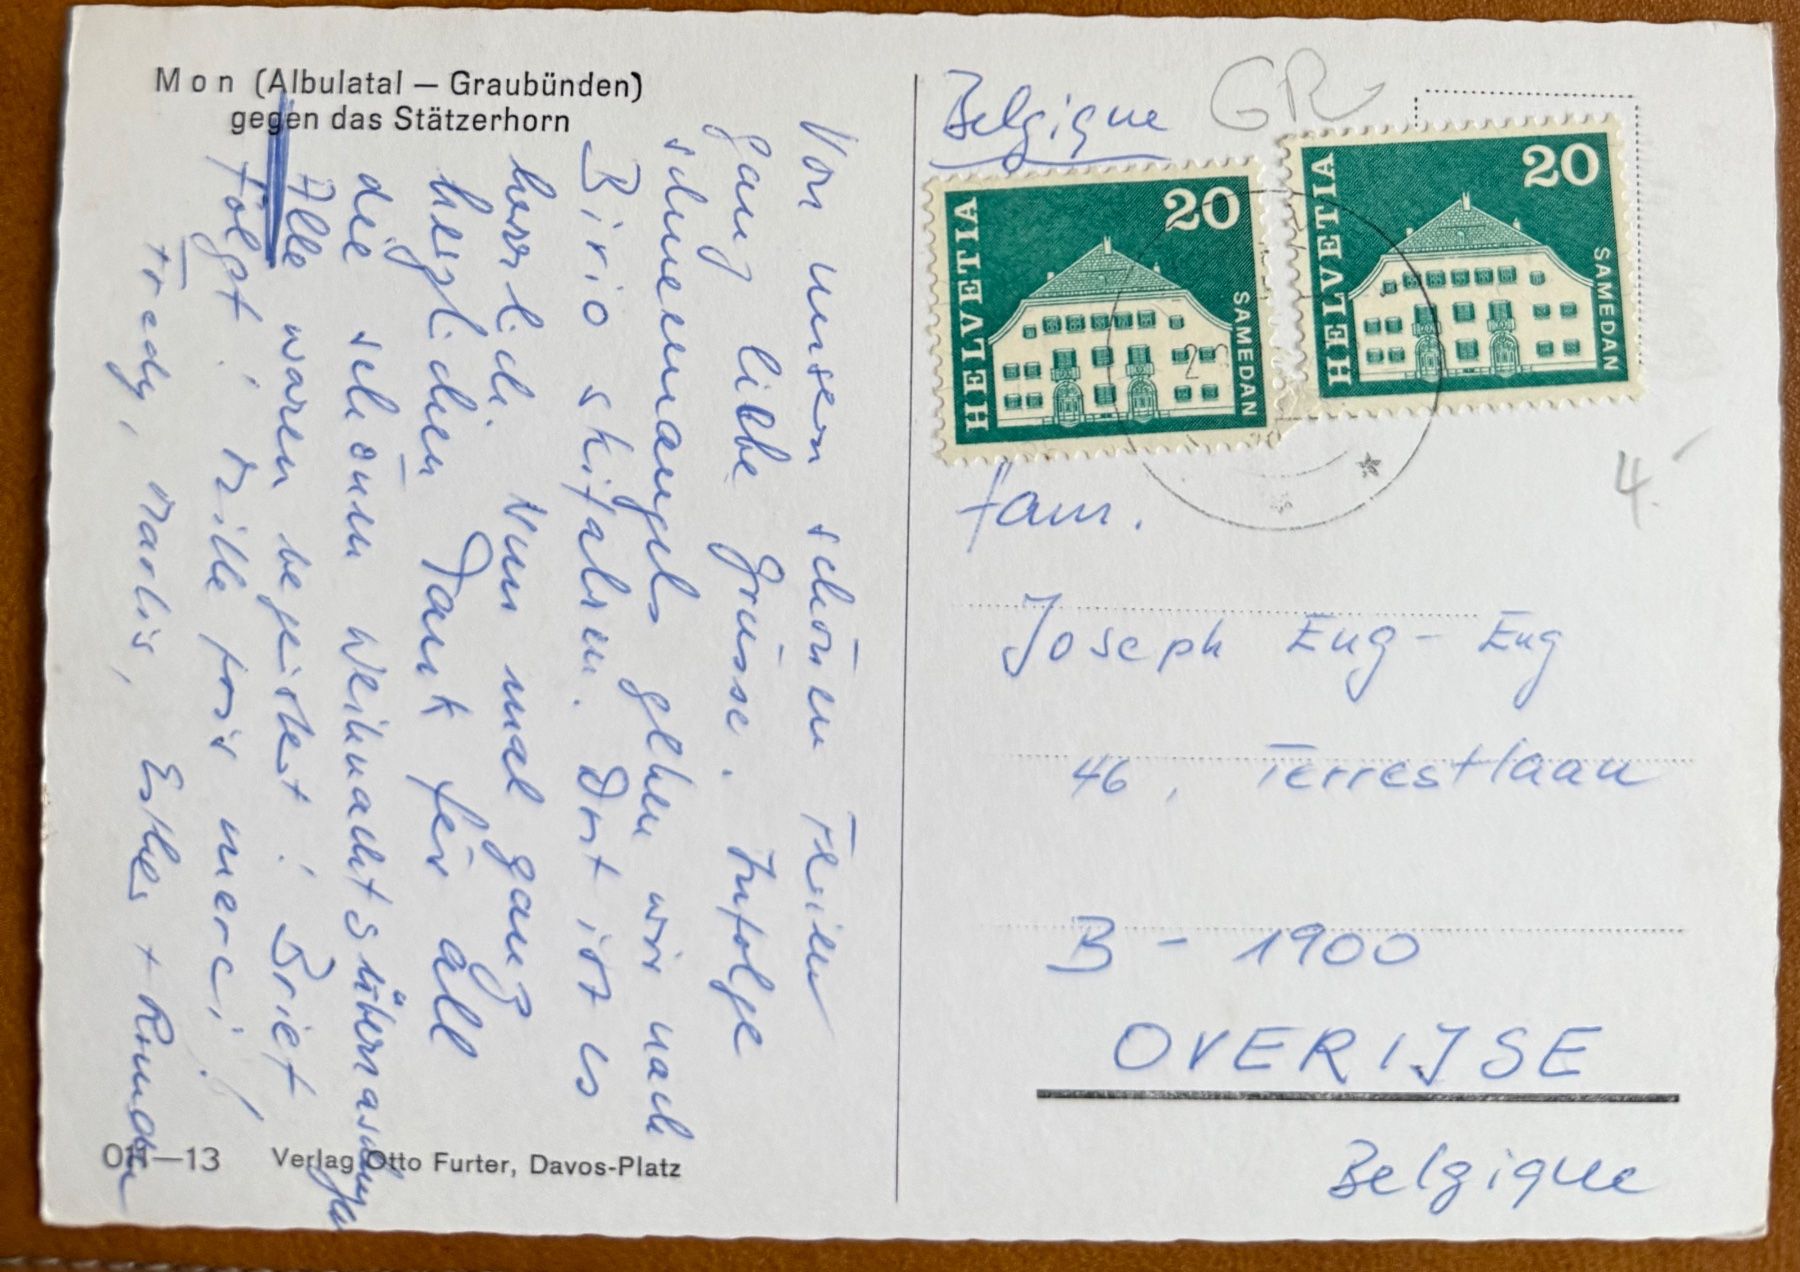 Mon (Albulatal — Graubünden)
gegen das Stätzerhorn
Von unsern schönen Ferien
ganz liebe Grüsse. Infolge
schneemangels gehen wir nach
Bivio skifahren. Dort ist es
herrlich. Nun mal ganz
herzlichen Dank für all
die schönen Weihnachtsüberraschungen
Alle waren begeistert! Brief
folgt! Mille fois merci!
Fredy, Marlis, Esther +
Verlag Otto Furter, Davos-Platz
Belgique
GR
HELVETIA
20
SAMEDAN
HELVETIA
20
SAMEDAN
4.
Fam.
Joseph Eug - Eug
46, Terrestlaan
B - 1900
OVERIJSE
Belgique